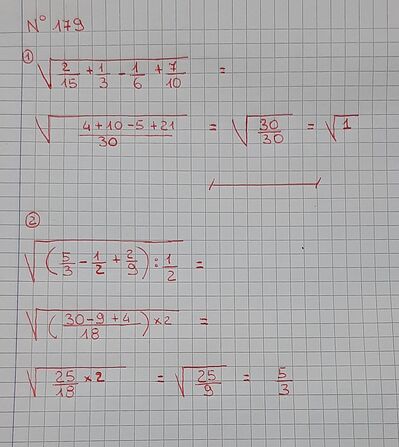 N° 179
①
√(2/15 + 1/3 - 1/6 + 7/10) =
√((4+10-5+21)/30) = √(30/30) = √1
②
√((5/3 - 1/2 + 2/9) : 1/2) =
√(((30-9+4)/18) × 2) =
√(25/18 × 2) = √(25/9) = 5/3